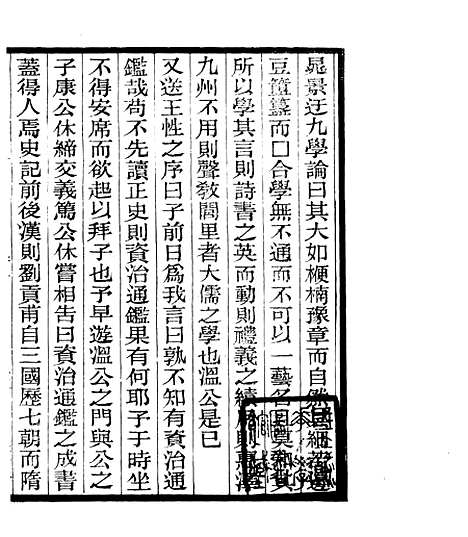 晁景迂九學論曰其大如楩楠豫章而自
豆簠簋而口合學無不通而不可以一藝名
所以學其言則詩書之英而動則禮義之績
九州不用則聲敎閭里者大儒之學也溫公是已
又送王性之序曰子前日爲我言曰孰不知有資治通
鑑哉苟不先讀正史則資治通鑑果有何耶予于時坐
不得安席而欲起以拜子也予早遊溫公之門與公之
子康公休締交義篤公休嘗相吿曰資治通鑑之成書
蓋得人焉史記前後漢則劉貢甫自三國歷七朝而隋